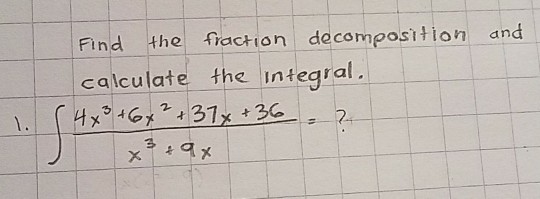 Find the fraction decomposition and
calculate the integral.
1. ∫ (4x³ + 6x² + 37x + 36)/(x³ + 9x) = ?